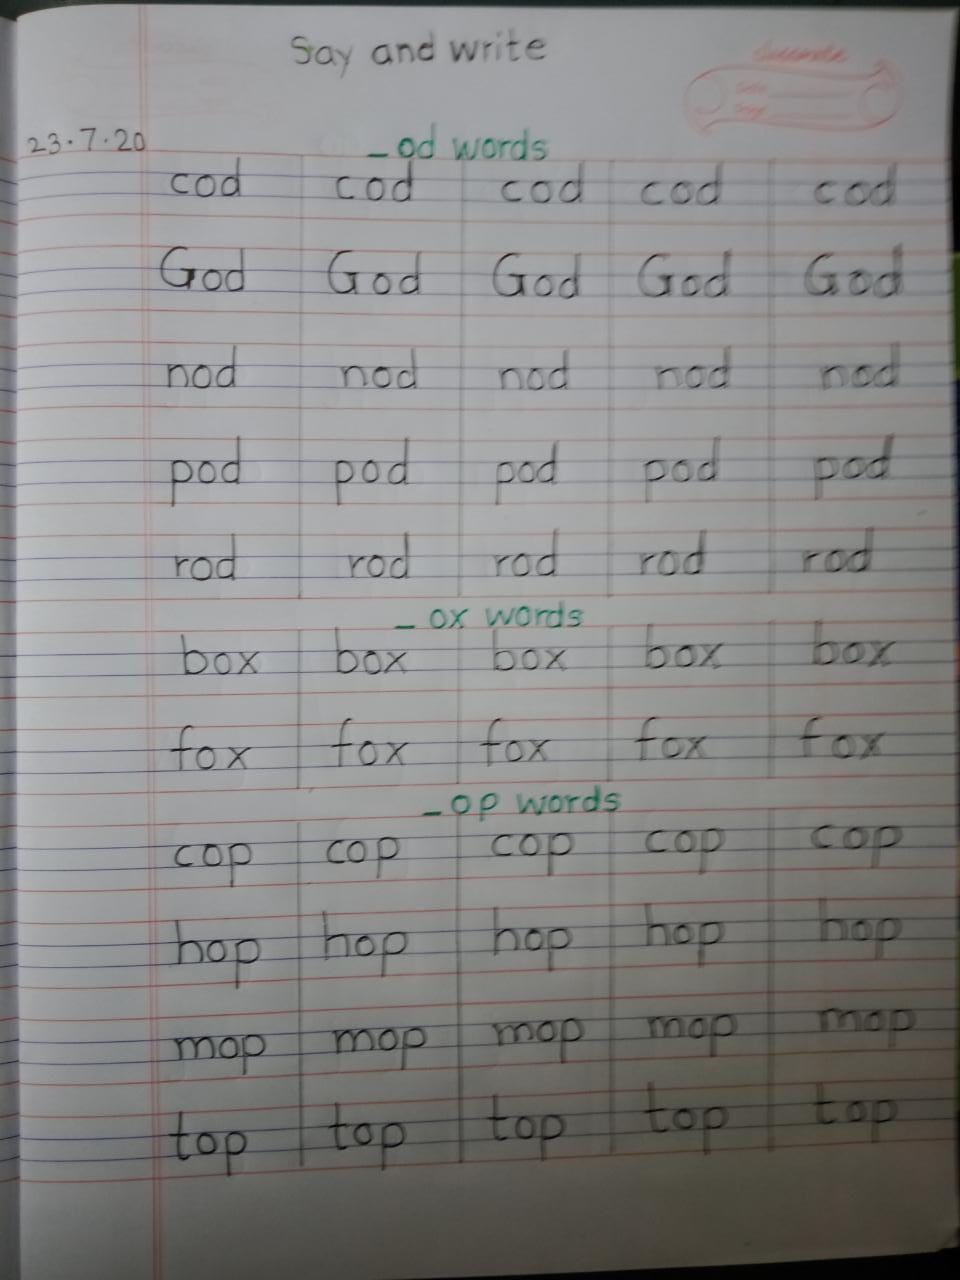 Say and write
classmate
Date
Page
23.7.20
_od words
cod cod cod cod cod
God God God God God
nod nod nod nod nod
pod pod pod pod pod
rod rod rod rod rod
_ox words
box box box box box
fox fox fox fox fox
_op words
cop cop cop cop cop
hop hop hop hop hop
mop mop mop mop mop
top top top top top